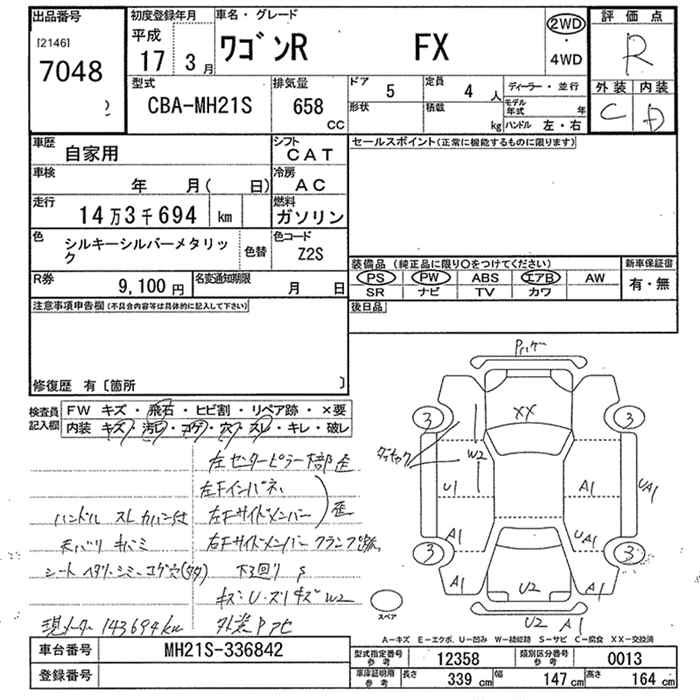 出品番号
[2146]
7048
初度登録年月
平成
17 3月
車名・グレード
ワゴンR FX
2WD
・
4WD
評価点
R
外装 内装
C D
型式
CBA-MH21S
排気量
658
CC
ドア 5
定員 4 人
形状
積載 kg
ディーラー・並行
モデル年式 年
ハンドル 左・右
車歴
自家用
シフト
CAT
車検
年 月( 日)
冷房
AC
走行
14万3千694 km
燃料
ガソリン
色
シルキーシルバーメタリック
色替
色コード
Z2S
R券
9,100円
名変通知期限
月 日
セールスポイント(正常に機能するものに限ります)
装備品 (純正品に限り○をつけてください)
PS PW ABS エアB AW
SR ナビ TV カワ
新車保証書
有・無
後日品
注意事項申告欄(不具合内容等は具体的に記入して下さい)
修復歴 有〔箇所 〕
検査員記入欄
FW キズ・飛石・ヒビ割・リペア跡・×要
内装 キズ・汚レ・コゲ・穴・スレ・キレ・破レ
左センターピラー下部歪
左Fインパネ
ハンドル スレ カバー付
左Fサイドメンバー
歪
天バリ キバミ
右Fサイドメンバー クランプ跡
下回り S
キズ・U・ズリキズ W2
現メーター 143694km
XX
3 3
W2
U1 A1 UA1
A1 UA1
3 3
A1 U2 A1
U2 A1
スペア
A−キズ E−エクボ、U−凹み W−補修跡 S−サビ C−腐食 XX−交換済
車台番号
MH21S-336842
登録番号
型式指定番号
参考
12358
類別区分番号
参考
0013
車庫証明用
参考
長さ 339 cm
幅 147 cm
高さ 164 cm